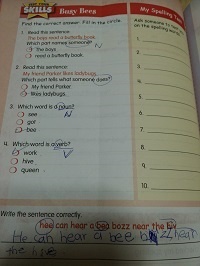 SKILLS
Busy Bees
My Spelling Test
Find the correct answer. Fill in the circle.
Ask someone to test you
on the spelling words.
1. Read this sentence:
The boys read a butterfly book.
Which part names someone?
The boys
N
read a butterfly book
2. Read this sentence:
My friend Parker likes ladybugs.
Which part tells what someone does?
My friend Parker
likes ladybugs
3. Which word is a noun?
see
N
got
bee
4. Which word is a verb?
work
V
hive
queen
1.
2.
3.
4.
5.
6.
7.
8.
9.
10.
Write the sentence correctly.
hee can hear a bea bozz near the hiv
He can hear a bee
the hive